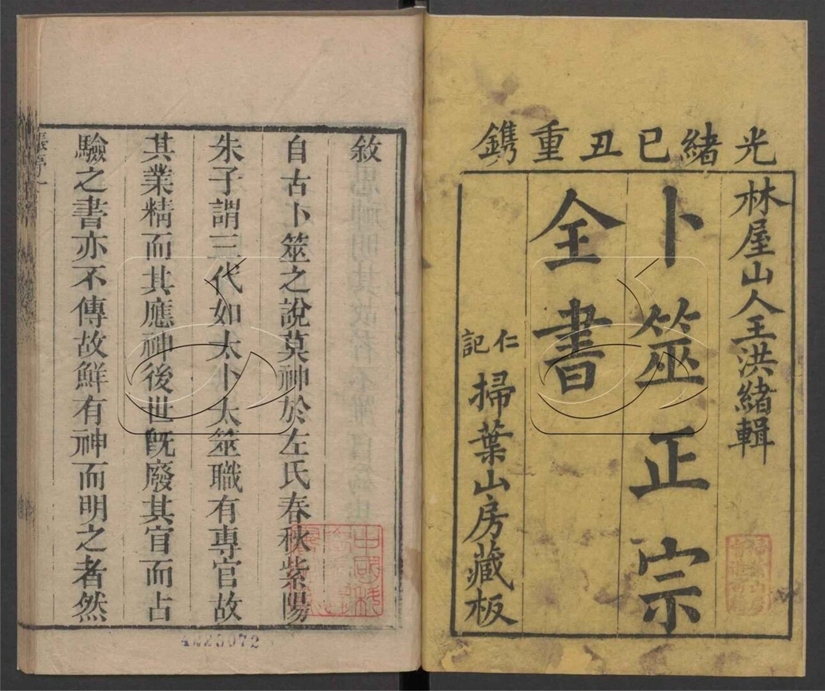 光緒已丑重鐫
林屋山人王洪緒輯
卜筮正宗
全書
仁記
掃葉山房藏板
敘
自古卜筮之說莫神於左氏春秋紫陽
朱子謂三代如太卜太筮職有專官故
其業精而其應神後世旣廢其官而占
驗之書亦不傳故鮮有神而明之者然
4423072